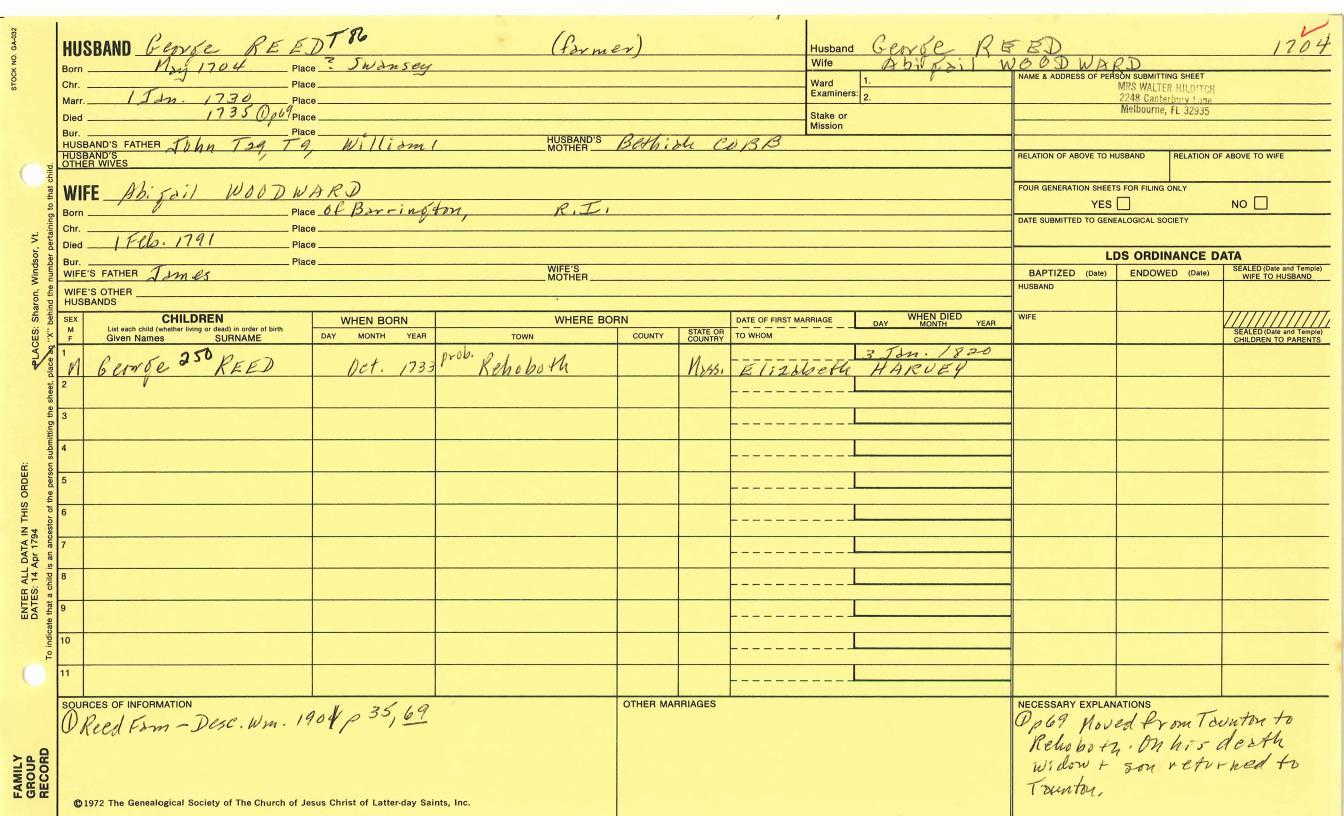 STOCK NO. GA-032
HUSBAND George REED T86 (farmer)
Born May 1704 Place ? Swansey
Chr. Place
Marr. 1 Jan. 1730 Place
Died 1735 ①p69 Place
Bur. Place
HUSBAND'S FATHER John T29, T9, William1 HUSBAND'S MOTHER Bethiah COBB
HUSBAND'S OTHER WIVES
Husband George REED 1704
Wife Abigail WOODWARD
Ward Examiners: 1.
2.
Stake or Mission
NAME & ADDRESS OF PERSON SUBMITTING SHEET
MRS WALTER HILDITCH
2248 Canterbury Lane
Melbourne, FL 32935
RELATION OF ABOVE TO HUSBAND RELATION OF ABOVE TO WIFE
FOUR GENERATION SHEETS FOR FILING ONLY
YES NO
DATE SUBMITTED TO GENEALOGICAL SOCIETY
WIFE Abigail WOODWARD
Born Place of Barrington, R.I.
Chr. Place
Died 1 Feb. 1791 Place
Bur. Place
WIFE'S FATHER James WIFE'S MOTHER
WIFE'S OTHER HUSBANDS
LDS ORDINANCE DATA
BAPTIZED (Date) ENDOWED (Date) SEALED (Date and Temple) WIFE TO HUSBAND
HUSBAND
WIFE
SEALED (Date and Temple) CHILDREN TO PARENTS
SEX M F
CHILDREN
List each child (whether living or dead) in order of birth
Given Names SURNAME
WHEN BORN
DAY MONTH YEAR
WHERE BORN
TOWN COUNTY STATE OR COUNTRY
DATE OF FIRST MARRIAGE
TO WHOM
WHEN DIED
DAY MONTH YEAR
1 3 Jan. 1820
M George 250 REED Oct. 1733 prob. Rehoboth Mass. Elizabeth HARVEY
2
3
4
5
6
7
8
9
10
11
SOURCES OF INFORMATION
① Reed Fam - Desc. Wm. 1901 p 35, 69
OTHER MARRIAGES
NECESSARY EXPLANATIONS
① p69 Moved from Taunton to
Rehoboth. On his death
widow + son returned to
Taunton.
©1972 The Genealogical Society of The Church of Jesus Christ of Latter-day Saints, Inc.
FAMILY GROUP RECORD
ENTER ALL DATA IN THIS ORDER:
DATES: 14 Apr 1794
PLACES: Sharon, Windsor, Vt.
To indicate that a child is an ancestor of the person submitting the sheet, place an "X" behind the number pertaining to that child.